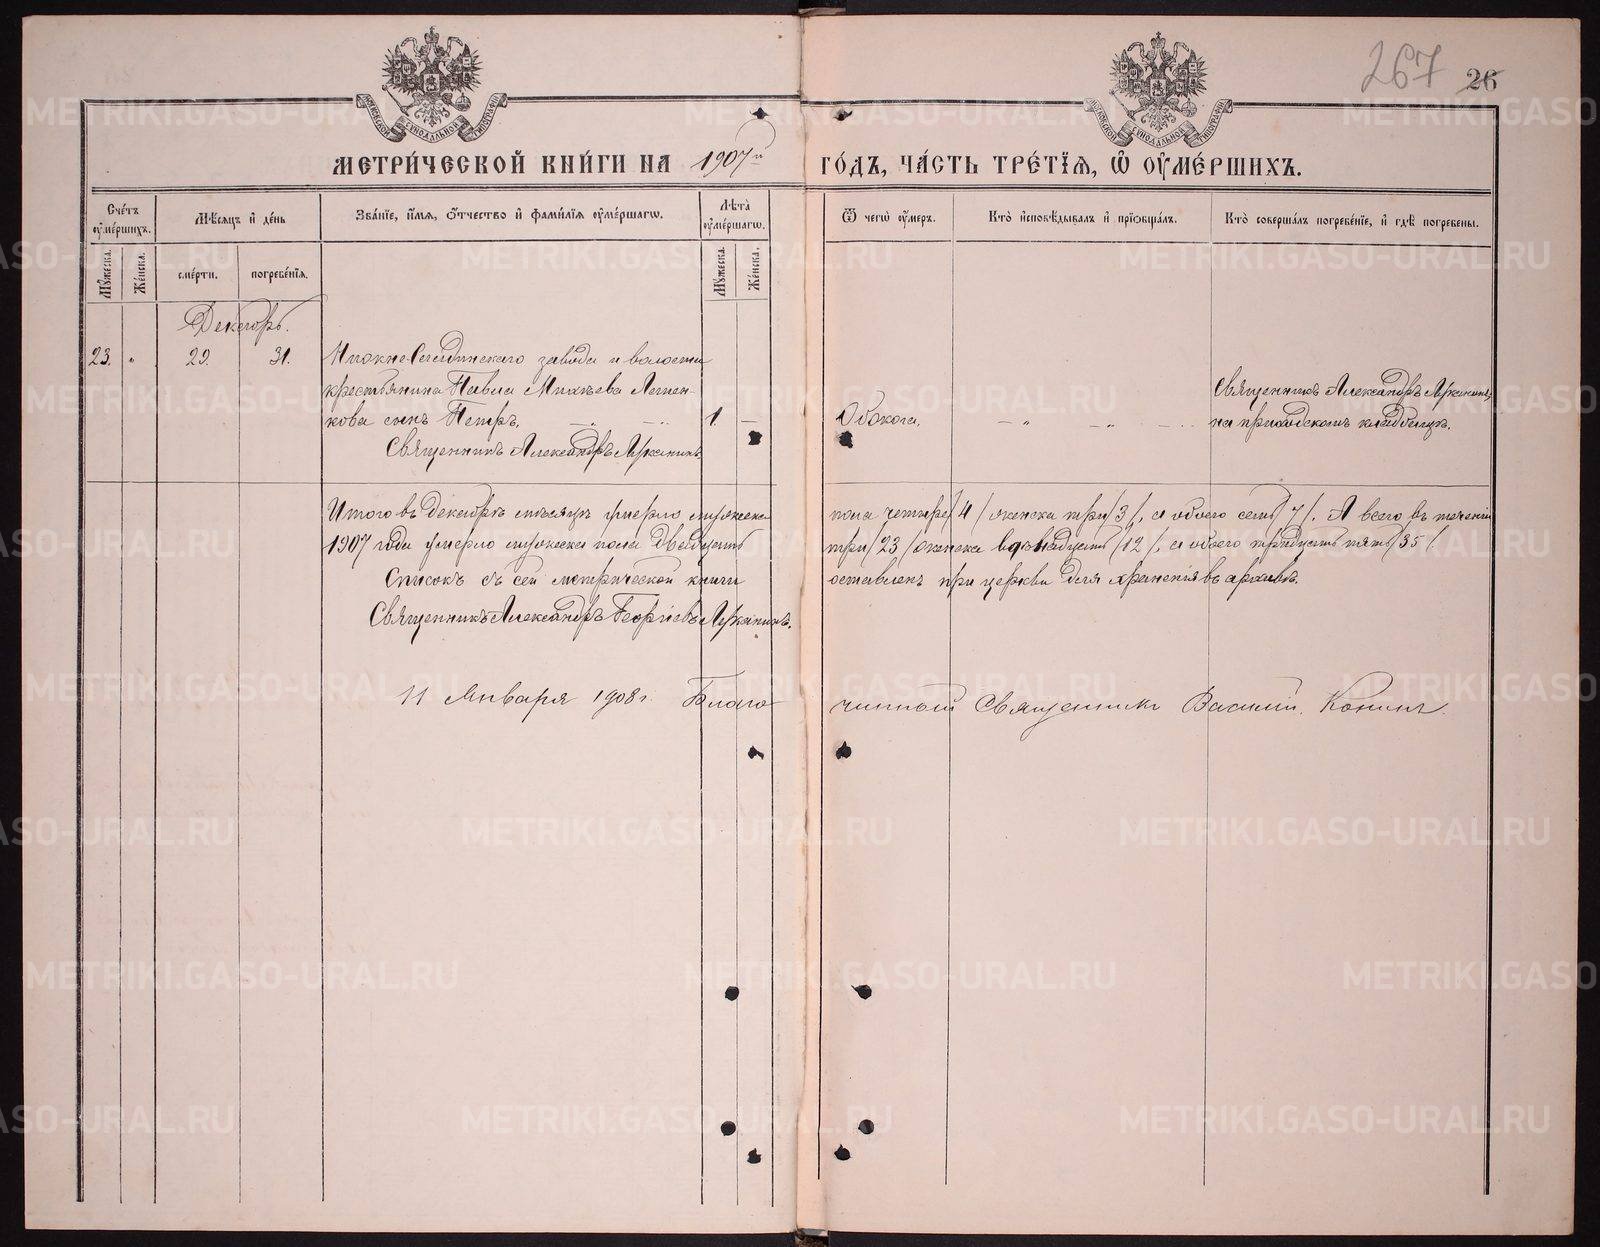 267 26
МОСКОВСКОЙ СѴНОДАЛЬНОЙ ТИПОГРАФІИ
МОСКОВСКОЙ СѴНОДАЛЬНОЙ ТИПОГРАФІИ
МЕТРИ́ЧЕСКОЙ КНИ́ГИ НА 1907й ГО́ДЪ, ЧА́СТЬ ТРЕ́ТІѦ, Ѽ ОУ҆МЕ́РШИХЪ.
Сче́тъ оу҆ме́ршихъ.
Мꙋ́жеска.
Же́нска.
Мѣ́сѧцъ и҆ де́нь
сме́рти.
погребе́нїѧ.
Зва́нїе, и҆́мѧ, ѻ҆́тчество и҆ фами́лїѧ оу҆ме́ршагѡ.
Лѣ́та оу҆ме́ршагѡ.
Мꙋ́жеска.
Же́нска.
Ѿ чегѡ̀ оу҆́меръ.
Кто̀ и҆сповѣ́дывалъ и҆ прїѡбща́лъ.
Кто̀ соверша́лъ погребе́нїе, и҆ гдѣ̀ погребе́ны.
Декабрь.
23. " 29. 31. Нижне-Сергинскаго завода и волости
крестьянина Павла Михѣева Лепен-
кова сынъ Петръ, 1. —
Священникъ Александръ Арканинъ
Священникъ Александръ Арканинъ,
на приходскомъ кладбищѣ.
Итого въ декабрѣ мѣсяцѣ умерло мужеска пола четыре /4/ женска три /3/, а обоего семь /7/. А всего въ теченіи
1907 года умерло мужеска пола двадцать три /23/ женска двѣнадцать /12/, а обоего тридцать пять /35/.
Списокъ съ сей метрической книги оставленъ при церкви для храненія въ архивѣ.
Священникъ Александръ Георгіевъ Арканинъ.
11 Января 1908 г. Благочинный Священникъ Василій